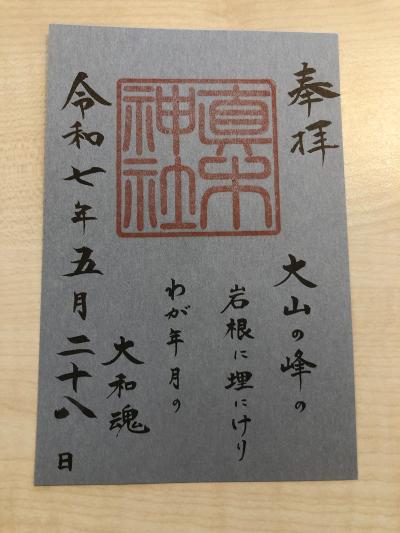 奉拝
真木
神社
大山の峰の
岩根に埋にけり
わが年月の
大和魂
令和七年五月二十八日